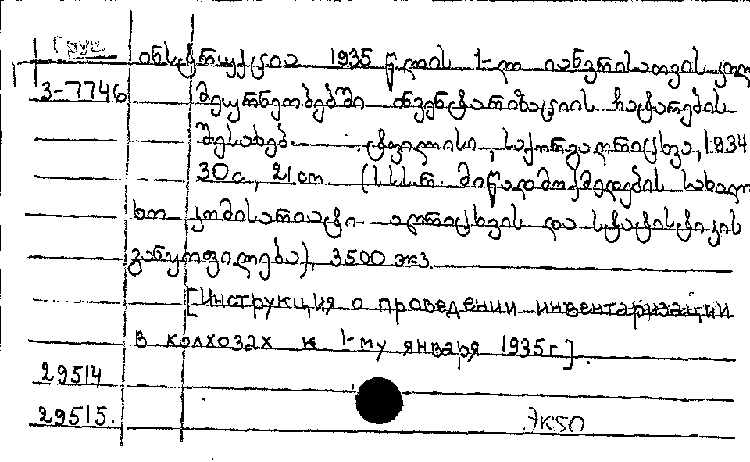 Груз
ინსტრუქცია 1935 წლის 1-ლ იანვრისათვის კოლ
3-7746 მეურნეობებში ინვენტარიზაციის ჩატარების
შესახებ. ტფილისი, საქონვაღრიცხვა, 1934
30 с, 21 cm (სსსრ. მიწადმოქმედების სახალ
ხო კომისარიატი აღრიცხვის და სტატისტიკის
განყოფილება), 3500 экз.
[Инструкция о проведении инвентаризации
в колхозах к 1-му января 1935 г].
29514
29515. ЭК50